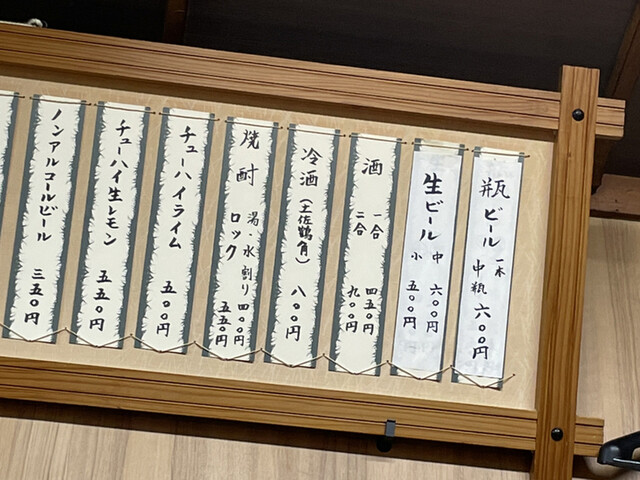 瓶ビール 一本 中瓶 六〇〇円
生ビール 中 六〇〇円
小 五〇〇円
酒 一合 四五〇円
二合 九〇〇円
冷酒(土佐鶴角) 八〇〇円
焼酎 湯・水割り 四〇〇円
ロック 五五〇円
チューハイライム 五〇〇円
チューハイ生レモン 五五〇円
ノンアルコールビール 三五〇円